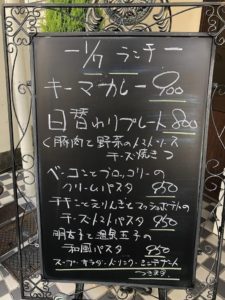 1/7 ランチ
キーマカレー 900
日替わりプレート 800
く豚肉と野菜のトマトソース
チーズ焼き〉
ベーコンとブロッコリーの
クリームパスタ 950
チキンとえりんぎとマッシュルームの
チーズトマトパスタ 950
明太子と温泉玉子の
和風パスタ 950
スープ・サラダ・ドリンク・ミニデザート
つきます。